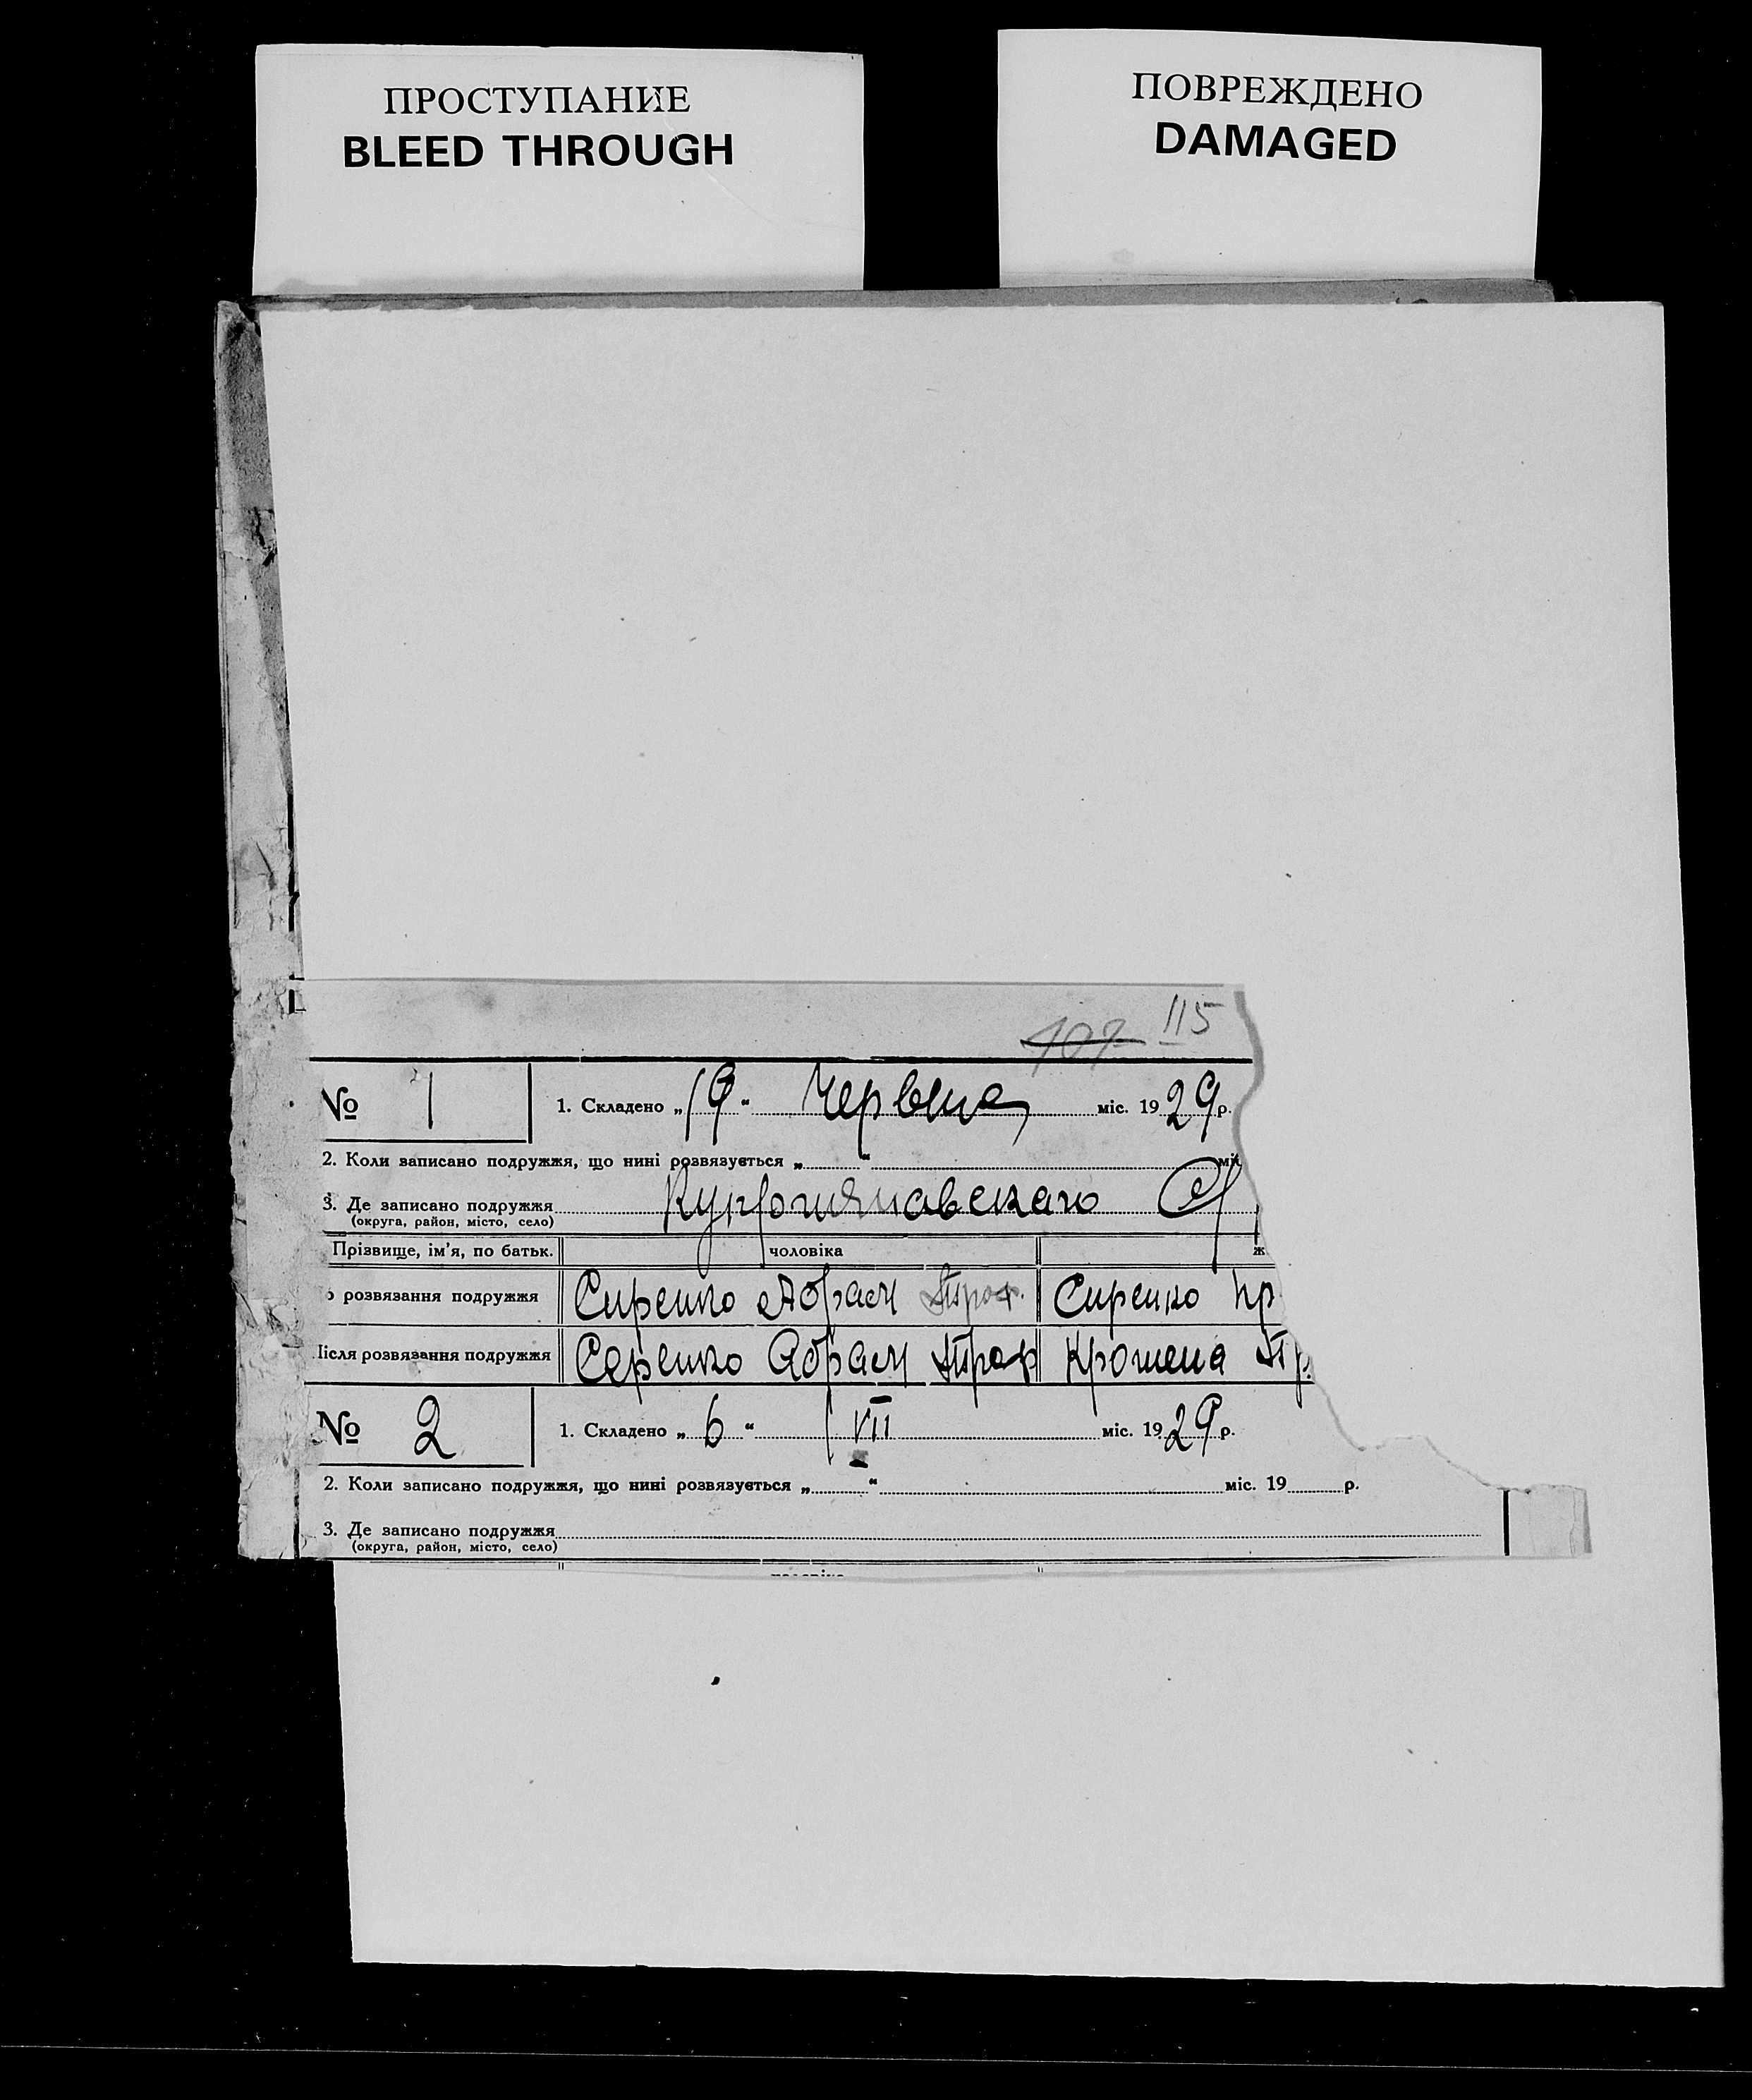 ПРОСТУПАНИЕ
BLEED THROUGH
ПОВРЕЖДЕНО
DAMAGED
107 115
№ 1 1. Складено „19“ Червня міс. 1929 р.
2. Коли записано подружжя, що нині розвязується „ “ міс
3. Де записано подружжя
(округа, район, місто, село)
Прізвище, ім'я, по батьк. чоловіка ж
о розвязання подружжя Сиренко Абрам Троф. Сиренко
Після розвязання подружжя Серенко Абрам Троф
№ 2 1. Складено „6“ VII міс. 1929 р.
2. Коли записано подружжя, що нині розвязується „ “ міс. 19 р.
3. Де записано подружжя
(округа, район, місто, село)
чоловіка